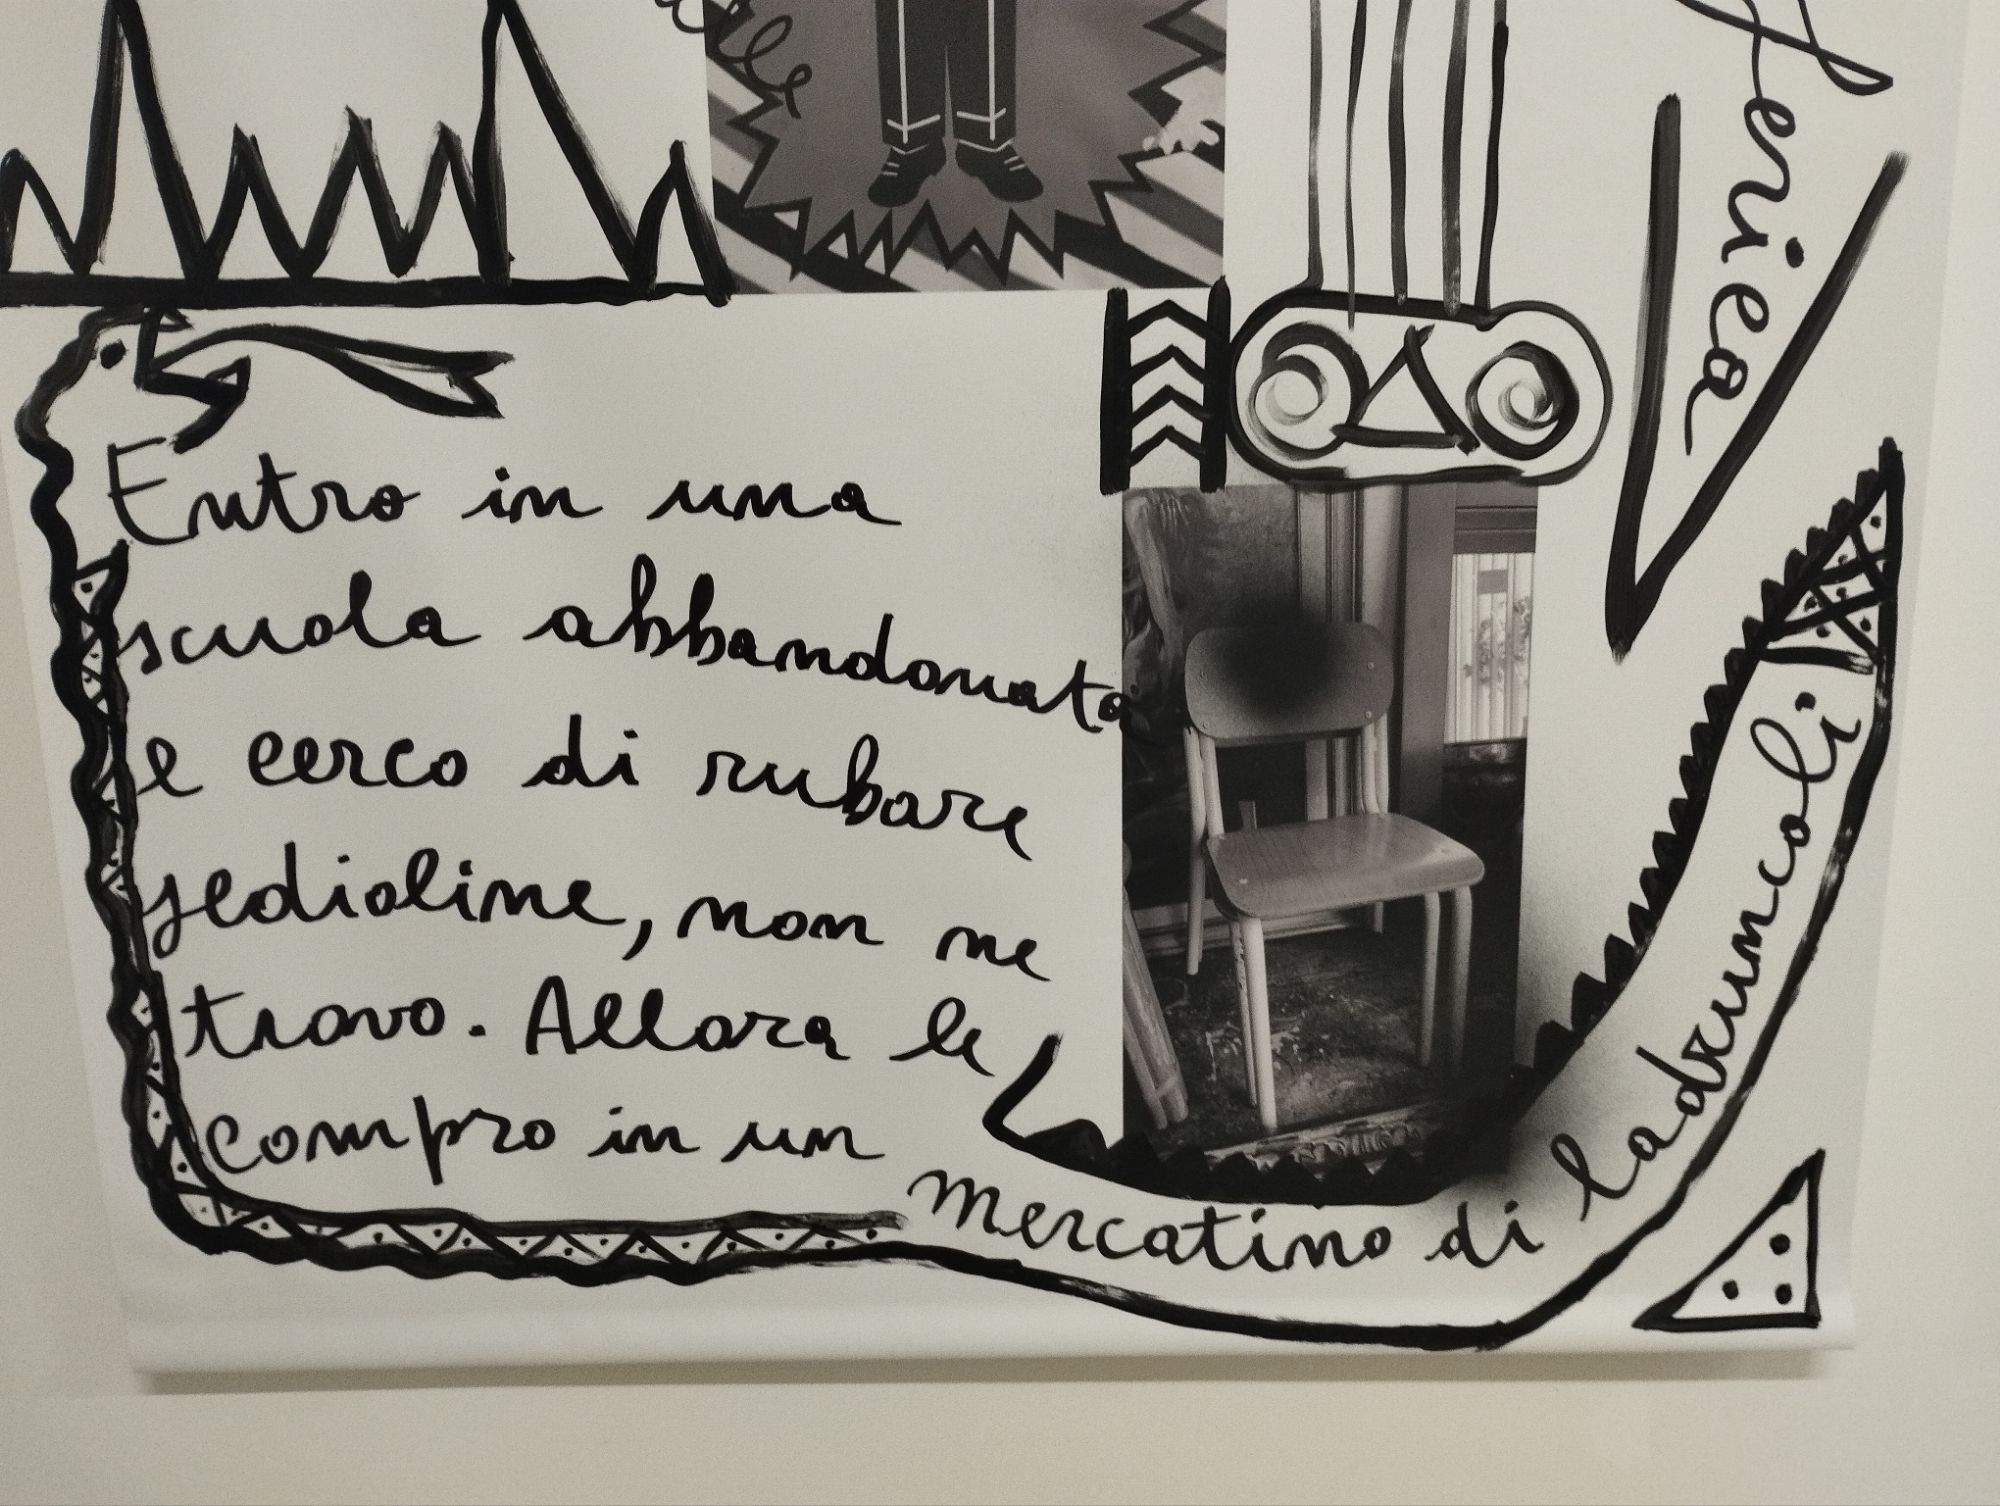 Entro in una
scuola abbandonata
e cerco di rubare
sedioline, non ne
trovo. Allora le
compro in un
mercatino di ladruncoli